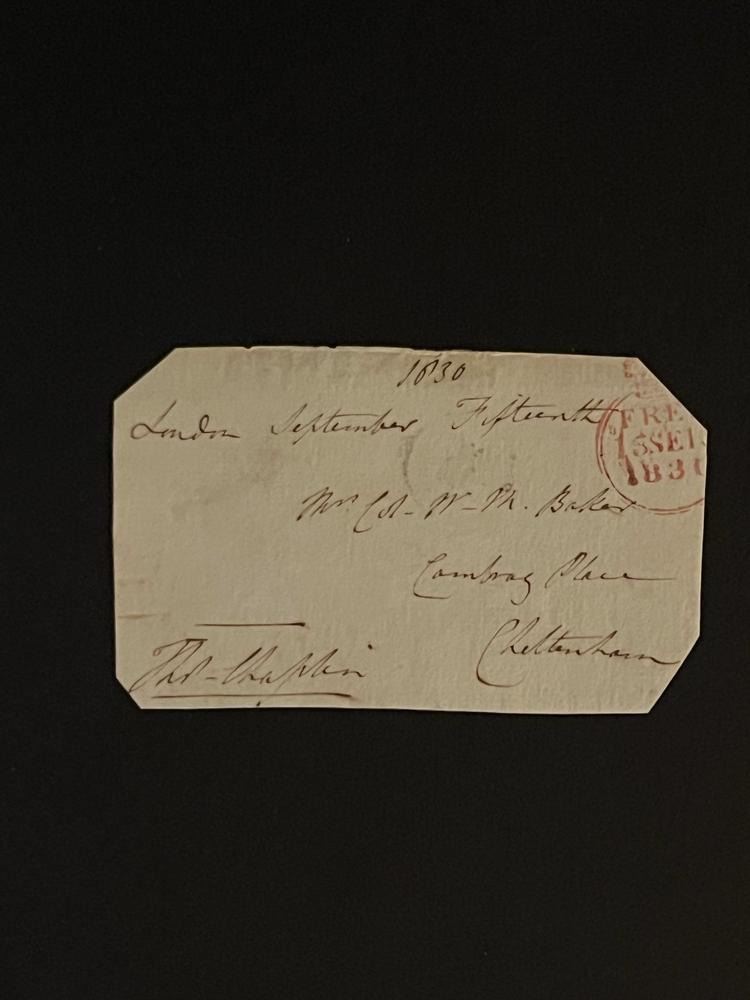 1830
London September Fifteenth
FREE
Mrs Col- W- M. Baker
5SE
1830
Cambray Place
Cheltenham
Thos- Chaplin